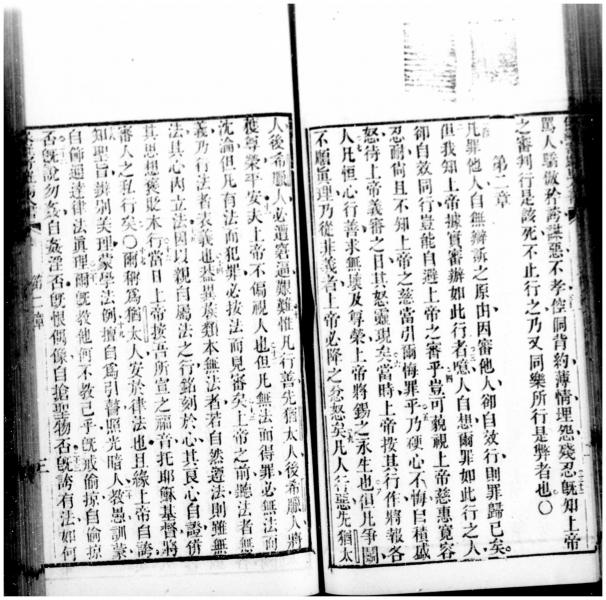 罵人驕傲矜誇謀惡不孝倥侗背約薄情埋怨殘忍既知上帝
之審判行是該死不止此行之乃又同樂所行是弊者也〇
第二章
凡罪他人自無辯訴之原由因審他人卻自效行則罪歸己矣
但我知上帝據真審辦如此行者噫人自想爾罪如此行之人
卻自效同行豈能自避上帝之審乎豈可藐視上帝慈惠寬容
忍耐尚且不知上帝之慈當引爾悔罪乎乃硬心不悔曰積蓄
怒待上帝義審之日其怒靈現矣當時上帝按其行作將報各
人凡恒心行善求無壞及尊榮上帝將錫之永生也但凡爭鬬
不願真理乃從非義者上帝必降之忿怒矣凡人行惡先猶太
人後希臘人必遭窘逼艱難惟凡行善先猶太人後希臘人將
獲尊榮平安夫上帝不偏視人也但凡無法而得罪必無法而
沈淪但凡有法而犯罪必按法而見審矣上帝之前聽法者無
義乃行法者表義也蓋異族類本無法者若自然遵法則雖無
法其心內立法因以親自屬法之行銘刻於心其良心自證併
其思想褒貶本行當日上帝按吾所宣之福音托耶穌基督將
審人之私行矣〇爾稱為猶太人安於律法也且緣上帝自誇
知聖旨辨別矣理蒙學法例擅自為引瞽照光暗人教愚訓蒙
自師迵達律法真理爾既教他何不教己乎既戒偷掠自偷掠
否既說勿姦自姦淫否既恨偶像自搶聖物否既誇有法如何
第二章
三